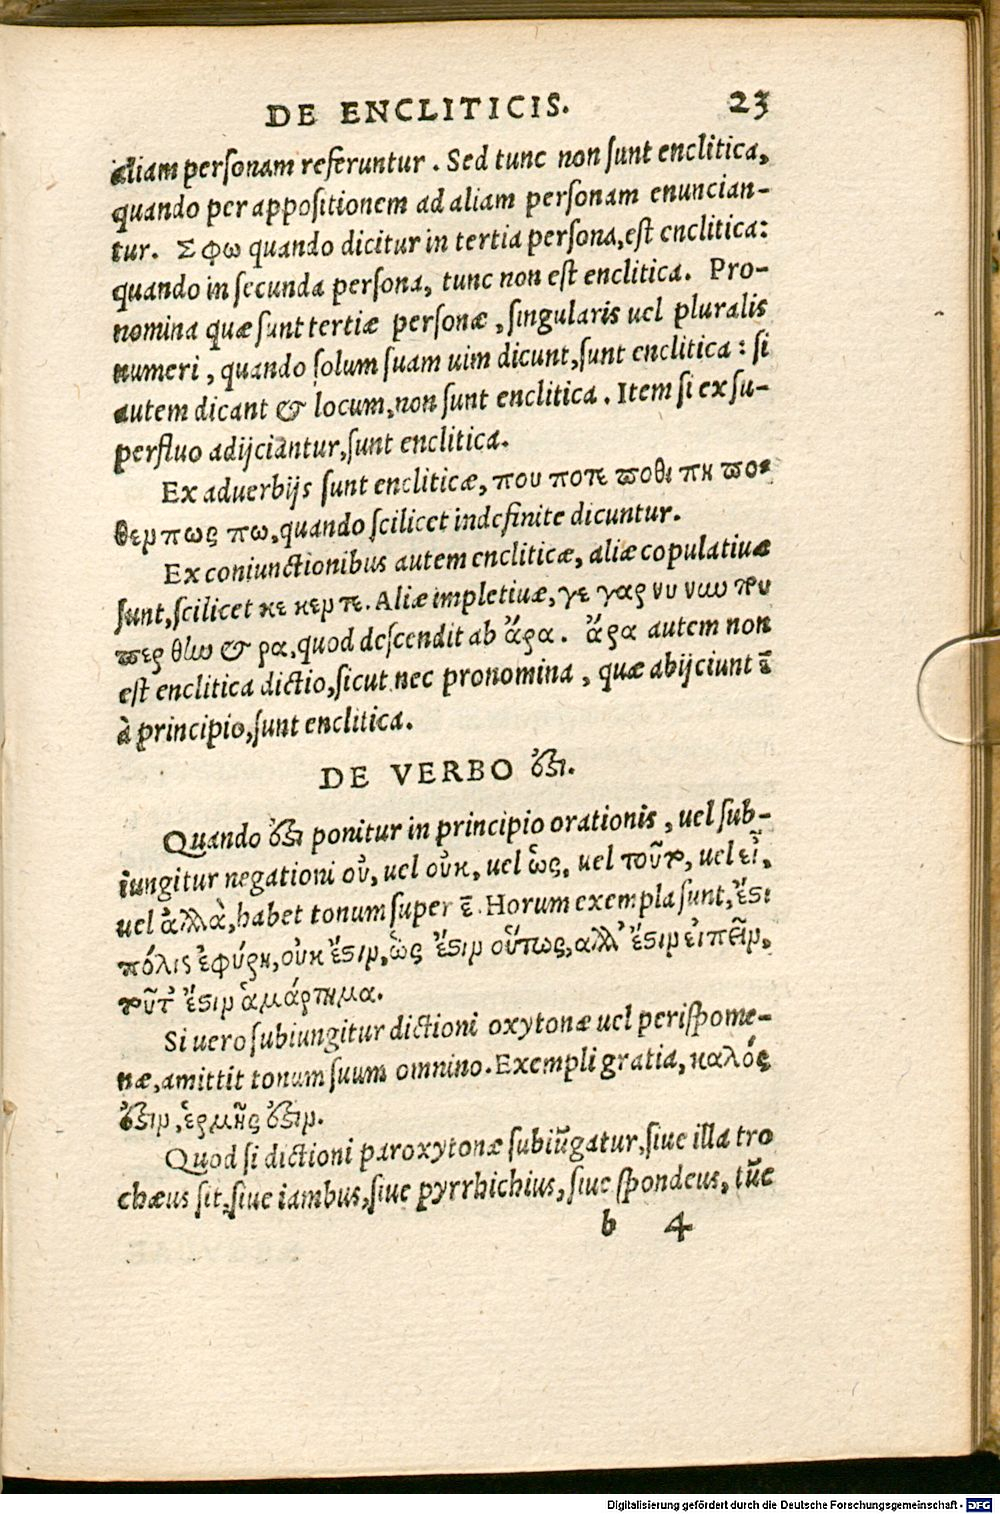 DE ENCLITICIS. 23
aliam personam referuntur. Sed tunc non sunt enclitica,
quando per appositionem ad aliam personam enuncian-
tur. Σφω quando dicitur in tertia persona, est enclitica:
quando in secunda persona, tunc non est enclitica. Pro-
nomina quæ sunt tertiæ personæ, singularis uel pluralis
numeri, quando solum suam uim dicunt, sunt enclitica: si
autem dicant & locum, non sunt enclitica. Item si ex su-
perfluo adijciantur, sunt enclitica.
Ex aduerbijs sunt encliticæ, που ποτε ποθι πη πο-
θεν πως πω, quando scilicet indefinite dicuntur.
Ex coniunctionibus autem encliticæ, aliæ copulatiuæ
sunt, scilicet κε κεν τε. Aliæ impletiuæ, γε γαρ νυ νιω του
περ θlω & ρα, quod descendit ab ἄρα. ἄρα autem non
est enclitica dictio, sicut nec pronomina, quæ abijciunt τ̄
à principio, sunt enclitica.
DE VERBO ἐστι.
Quando ἐστι ponitur in principio orationis, uel sub-
iungitur negationi οὐ, uel οὐκ, uel ὡς, uel τοῦτο, uel εἰ,
uel ἀλλὰ, habet tonum super ε̄. Horum exempla sunt, ἔστι
πόλις ἐφύρη, οὐκ ἔστιν, ὡς ἔστιν οὕτως, ἀλλ' ἔστιν εἰπεῖν,
τοῦτ' ἔστιν ἁμάρτημα.
Si uero subiungitur dictioni oxytonæ uel perispome-
næ, amittit tonum suum omnino. Exempli gratia, καλός
ἐστιν, ἑρμῆς ἐστιν.
Quod si dictioni paroxytonæ subiūgatur, siue illa tro
chæus sit, siue iambus, siue pyrrhichius, siue spondeus, tūc
b 4
Digitalisierung gefördert durch die Deutsche Forschungsgemeinschaft - DFG